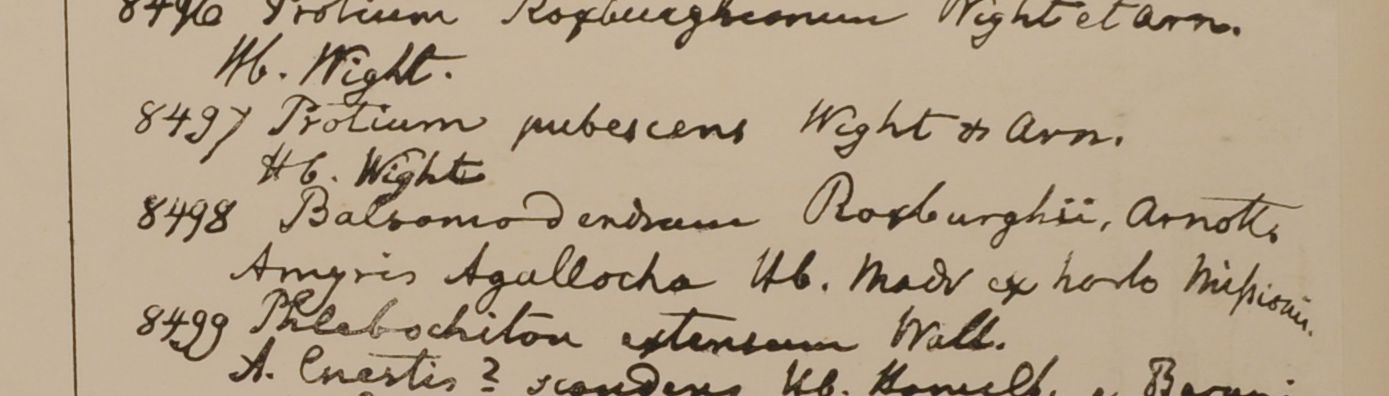 8496 Protium Roxburghianum Wight et Arn.
Hb. Wight.
8497 Protium pubescens Wight & Arn.
Hb. Wight
8498 Balsamodendrum Roxburghii, Arnott.
Amyris Agallocha Hb. Madr ex horto Missionis.
8499 Phlebochiton extensum Wall.
A. Cnestis? scandens Hb. Hamilt.